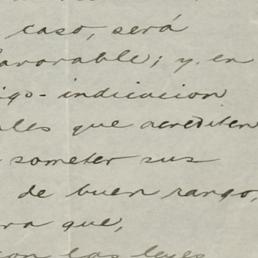 caso, será
favorable; y en
igo - indicacion
ales que acrediten
someter sus
de buen rango,
ra que,
con las leyes